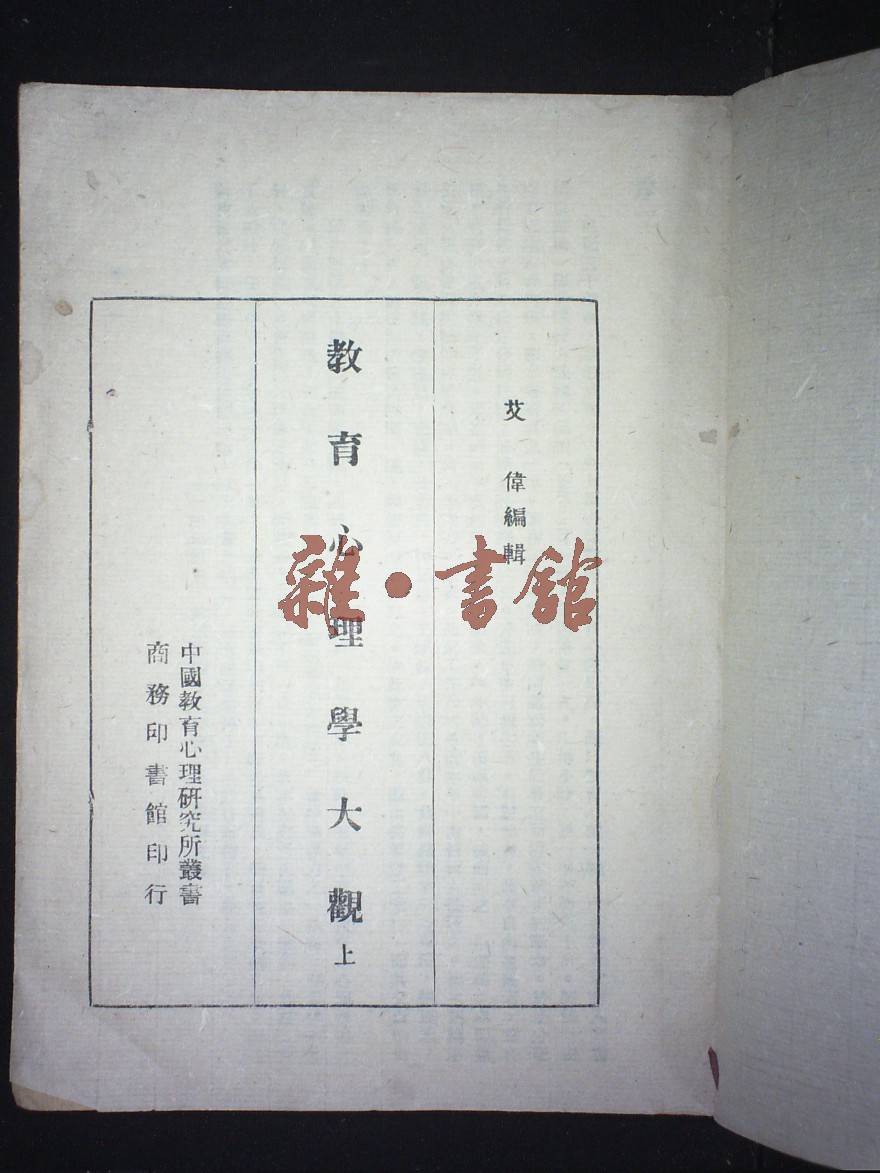 艾偉編輯
教育心理學大觀 上
中國教育心理研究所叢書
商務印書館印行
雜·書館